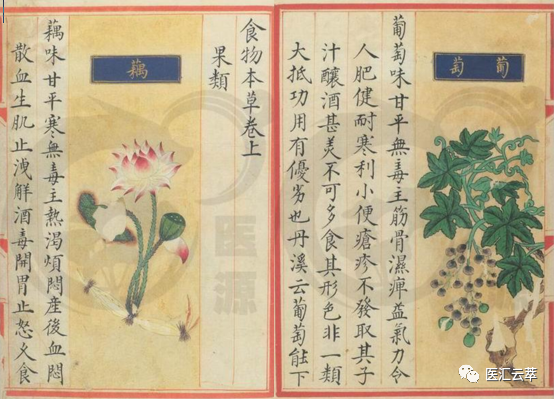 葡萄
葡萄味甘平無毒主筋骨濕痺益氣力令
人肥健耐寒利小便瘡疹不發取其子
汁釀酒甚美不可多食其形色非一類
大抵功用有優劣也丹溪云葡萄能下
食物本草卷上
果類
藕
藕味甘平寒無毒主熱渴煩悶産後血悶
散血生肌止洩解酒毒開胃止怒久食
医源
医汇云萃